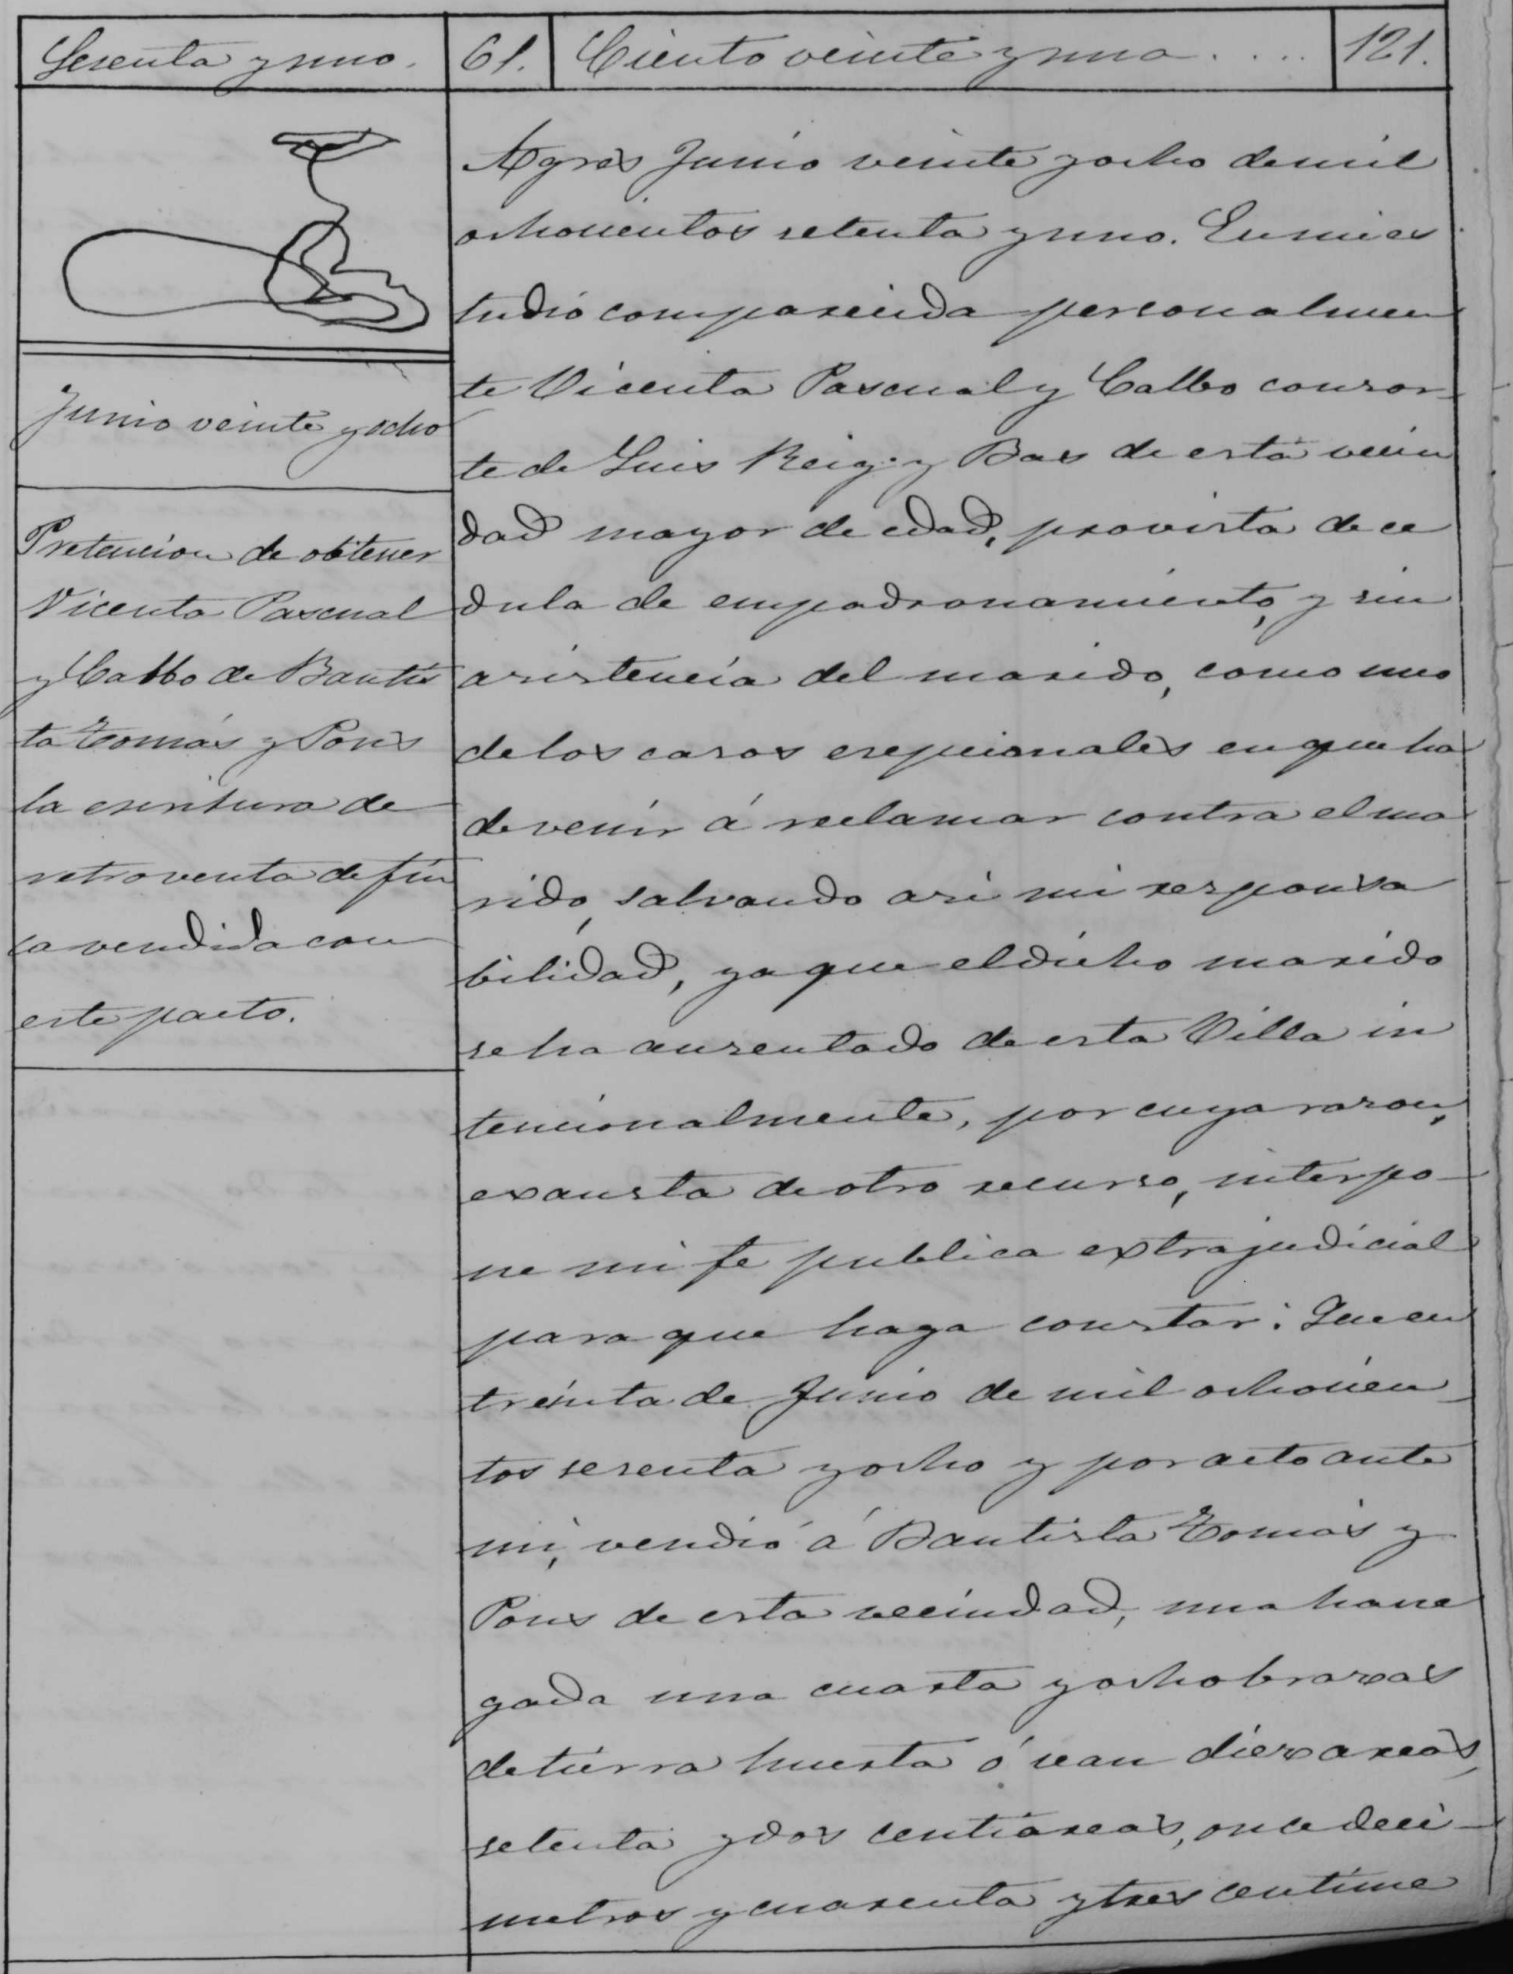 Sesenta y uno.
61.
Ciento veinte y uno....
121.
Junio veinte y ocho
Pretencion de obtener
Vicenta Pascual
y Calbo de Bautis
ta Tomás y Pons
la escritura de
retroventa de fin
ca vendida con
este pacto.
Agres Junio veinte y ocho de mil
ochocientos setenta y uno. En mi es
tudio comparecida personalmen
te Vicenta Pascual y Calbo consor-
te de Luis Reig y Bas de esta vecin
dad mayor de edad, provista de ce
dula de empadronamiento, y sin
asistencia del marido, como uno
de los casos ecepcionales en que ha
de venir á reclamar contra el ma
rido, salvando asi mi responsa
bilidad, ya que el dicho marido
se ha ausentado de esta Villa in
tencionalmente, por cuya razon,
exausta de otro recurso, interpo-
ne mi fe publica extrajudicial
para que haga constar: Que en
treinta de Junio de mil ochocien-
tos sesenta y ocho y por acto ante
mi, vendió á Bautista Tomás y
Pons de esta vecindad, una hane
gada una cuarta y ocho brazas
de tierra huerta ó sean diez areas,
setenta y dos centiareas, once deci-
metros y cuarenta y tres centime